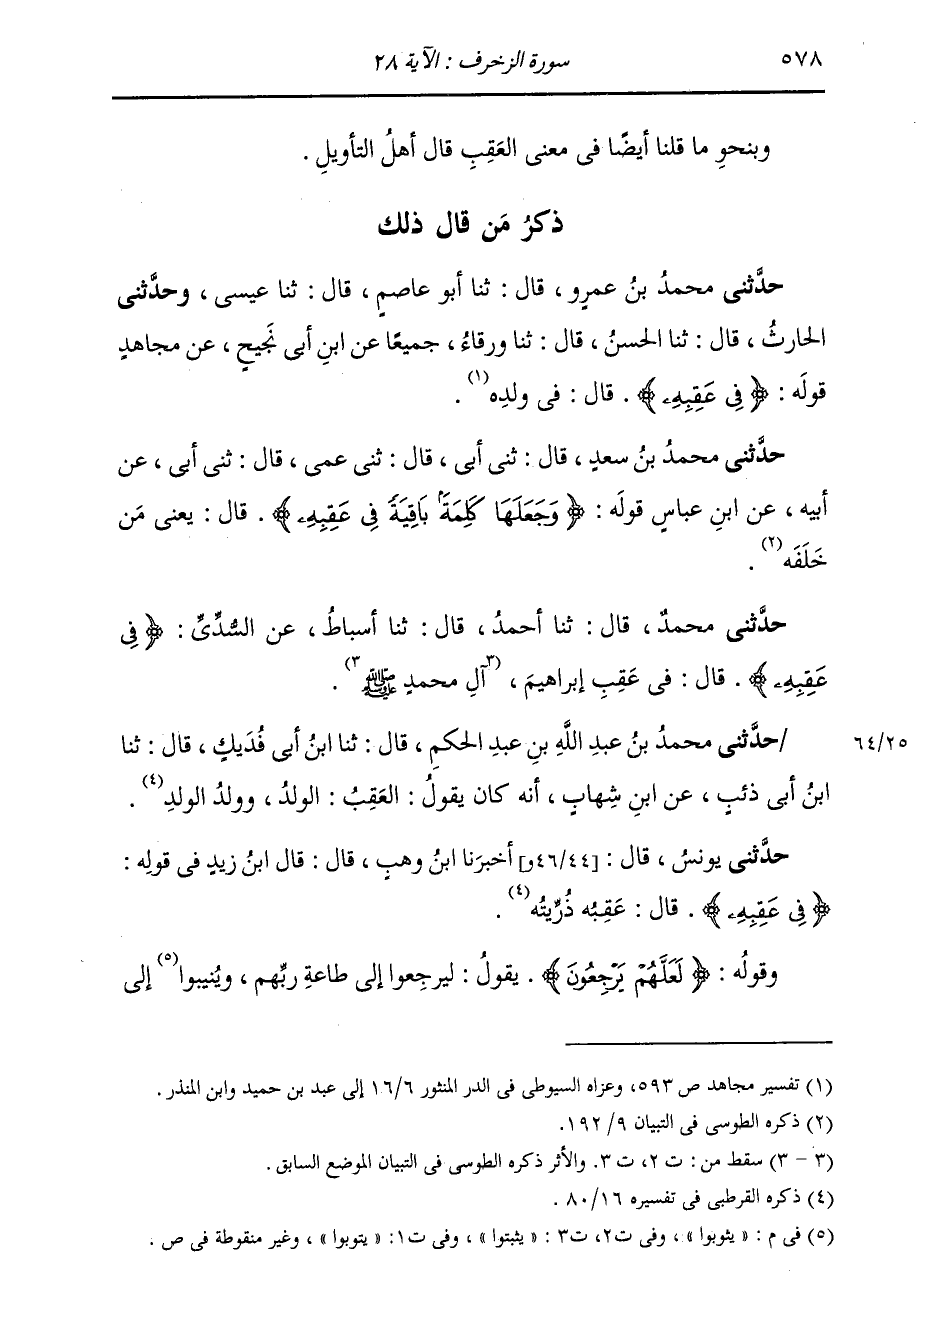 ٥٧٨ سورة الزخرف : الآية ٢٨
وبنحوِ ما قلنا أيضًا فى معنى العَقِبِ قال أهلُ التأويلِ .
ذكرُ مَن قال ذلك
حدَّثنى محمدُ بنُ عمرٍو ، قال : ثنا أبو عاصمٍ ، قال : ثنا عيسى ، وحدَّثنى
الحارثُ ، قال : ثنا الحسنُ ، قال : ثنا ورقاءُ ، جميعًا عن ابنِ أبى نَجيحٍ ، عن مجاهدٍ
قولَه : ﴿ فِى عَقِبِهِۦ ﴾ . قال : فى ولدِه(١) .
حدَّثنى محمدُ بنُ سعدٍ ، قال : ثنى أبى ، قال : ثنى عمى ، قال : ثنى أبى ، عن
أبيه ، عن ابنِ عباسٍ قولَه : ﴿ وَجَعَلَهَا كَلِمَةَۢ بَاقِيَةً فِى عَقِبِهِۦ ﴾ . قال : يعنى مَن
خَلَفَه(٢) .
حدَّثنى محمدٌ ، قال : ثنا أحمدُ ، قال : ثنا أسباطُ ، عن السُّدِّىِّ : ﴿ فِى
عَقِبِهِۦ ﴾ . قال : فى عَقِبِ إبراهيمَ ، (٣آلِ محمدٍ ﷺ٣) .
/حدَّثنى محمدُ بنُ عبدِ اللَّهِ بنِ عبدِ الحكمِ ، قال : ثنا ابنُ أبى فُدَيكٍ ، قال : ثنا ٦٤/٢٥
ابنُ أبى ذئبٍ ، عن ابنِ شِهابٍ ، أنه كان يقولُ : العَقِبُ : الولدُ ، وولدُ الولدِ(٤) .
حدَّثنى يونسُ ، قال : [٤٦/٤٤و] أخبرَنا ابنُ وهبٍ ، قال : قال ابنُ زيدٍ فى قولِه :
﴿ فِى عَقِبِهِۦ ﴾ . قال : عَقِبُه ذُرِّيتُه(٤) .
وقولُه : ﴿ لَعَلَّهُمْ يَرْجِعُونَ ﴾ . يقولُ : ليرجِعوا إلى طاعةِ ربِّهم ، ويُنيبوا(٥) إلى
(١) تفسير مجاهد ص ٥٩٣، وعزاه السيوطى فى الدر المنثور ١٦/٦ إلى عبد بن حميد وابن المنذر .
(٢) ذكره الطوسى فى التبيان ٩/ ١٩٢.
(٣ - ٣) سقط من : ت ٢، ت ٣. والأثر ذكره الطوسى فى التبيان الموضع السابق .
(٤) ذكره القرطبى فى تفسيره ٨٠/١٦ .
(٥) فى م : « يثوبوا » ، وفى ت٢، ت٣ : « يثبتوا » ، وفى ت١: « يتوبوا » ، وغير منقوطة فى ص .